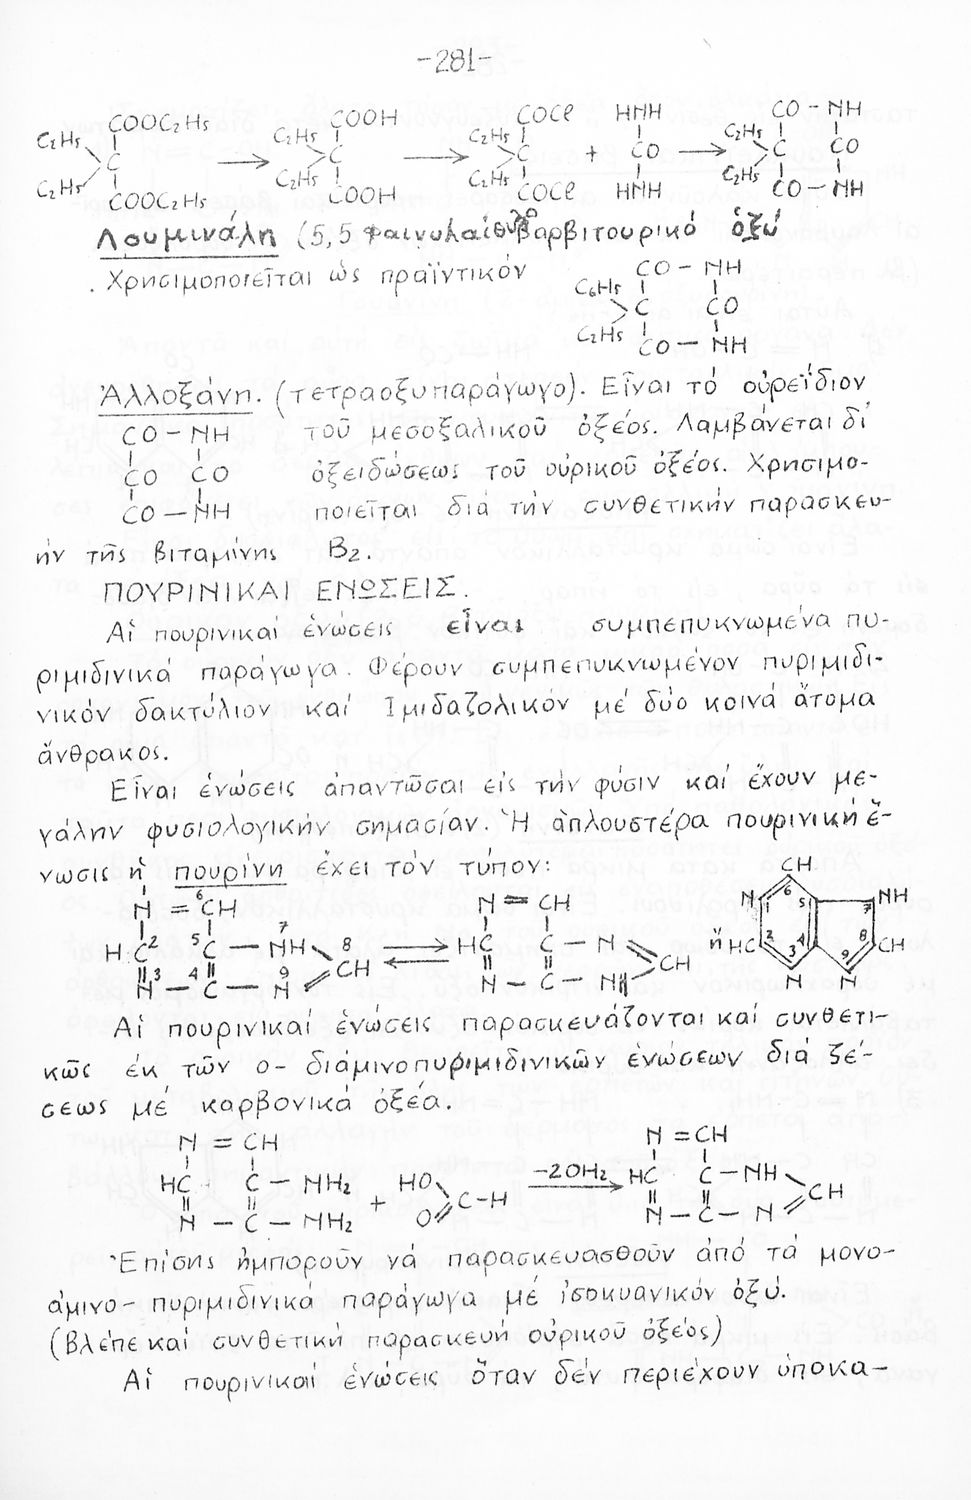 -281-
C₂H₅ COOC₂H₅ C₂H₅ COOH C₂H₅ COCl HNH CO - NH
C → C → C + CO → C₂H₅ C CO
C₂H₅ COOC₂H₅ C₂H₅ COOH C₂H₅ COCl HNH C₂H₅ CO - NH
Λουμινάλη (5,5 φαινυλαιθυλοβαρβιτουρικό ὀξύ
Χρησιμοποιεῖται ὡς πραϊντικόν
CO - NH
C₆H₅
C CO
C₂H₅
CO - NH
Ἀλλοξάνη. (τετραοξυπαράγωγο). Εἶναι τό οὐρεΐδιον
CO - NH τοῦ μεσοξαλικοῦ ὀξέος. Λαμβάνεται δι᾽
CO CO ὀξειδώσεως τοῦ οὐρικοῦ ὀξέος. Χρησιμο-
CO - NH ποιεῖται διά τήν συνθετικήν παρασκευ-
ήν τῆς βιταμίνης B₂.
ΠΟΥΡΙΝΙΚΑΙ ΕΝΩΣΕΙΣ.
Αἱ πουρινικαί ἑνώσεις εἶναι συμπεπυκνωμένα πυ-
ριμιδινικά παράγωγα. Φέρουν συμπεπυκνωμένον πυριμιδι-
νικόν δακτύλιον καί Ἰμιδαζολικόν μέ δύο κοινά ἄτομα
ἄνθρακος.
Εἶναι ἑνώσεις ἀπαντῶσαι εἰς τήν φύσιν καί ἔχουν με-
γάλην φυσιολογικήν σημασίαν. Ἡ ἁπλουστέρα πουρινική ἕ-
νωσις ἡ πουρίνη ἔχει τόν τύπον:
1 6 N = CH 7 N = CH CH N 1 6 5 7 NH
HC 2 5 C - NH 8 CH ⇌ HC C - N CH ἤ HC 2 3 4 9 8 CH
N 3 - 4 C - 9 N N - C - NH N N
Αἱ πουρινικαί ἑνώσεις παρασκευάζονται καί συνθετι-
κῶς ἐκ τῶν ο- διάμινοπυριμιδινικῶν ἑνώσεων διά ζέ-
σεως μέ καρβονικά ὀξέα.
N = CH N = CH
HC C - NH₂ + HO C - H -2OH₂ → HC C - NH CH
N - C - NH₂ O N - C - N
Ἐπίσης ἠμποροῦν νά παρασκευασθοῦν ἀπό τά μονο-
άμινο - πυριμιδινικά παράγωγα μέ ἰσοκυανικόν ὀξύ.
(βλέπε καί συνθετική παρασκευή οὐρικοῦ ὀξέος)
Αἱ πουρινικαί ἑνώσεις ὅταν δέν περιέχουν ὑποκα-